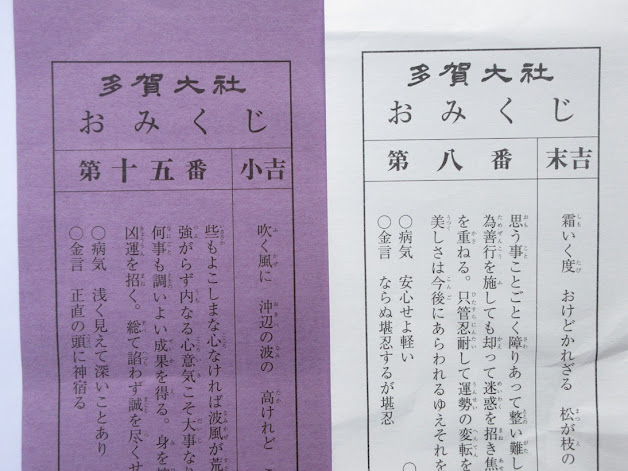 多賀大社
おみくじ
第十五番 小吉
吹く風に 沖辺の波の 高けれど
些もよこしまな心なければ波風が荒
強がらず内なる心意気こそ大事な
何事も調いよい成果を得る。身を
凶運を招く。総て諂わず誠を尽くせ
〇病気 浅く見えて深いことあり
〇金言 正直の頭に神宿る
多賀大社
おみくじ
第八番 末吉
霜いく度 おけどかれざる 松が枝の
思う事ことごとく障りあって整い難し
為善行を施しても却って迷惑を招き焦
を重ねる。只管忍耐して運勢の変転を
美しさは今後にあらわれるゆえそれを
〇病気 安心せよ軽い
〇金言 ならぬ堪忍するが堪忍